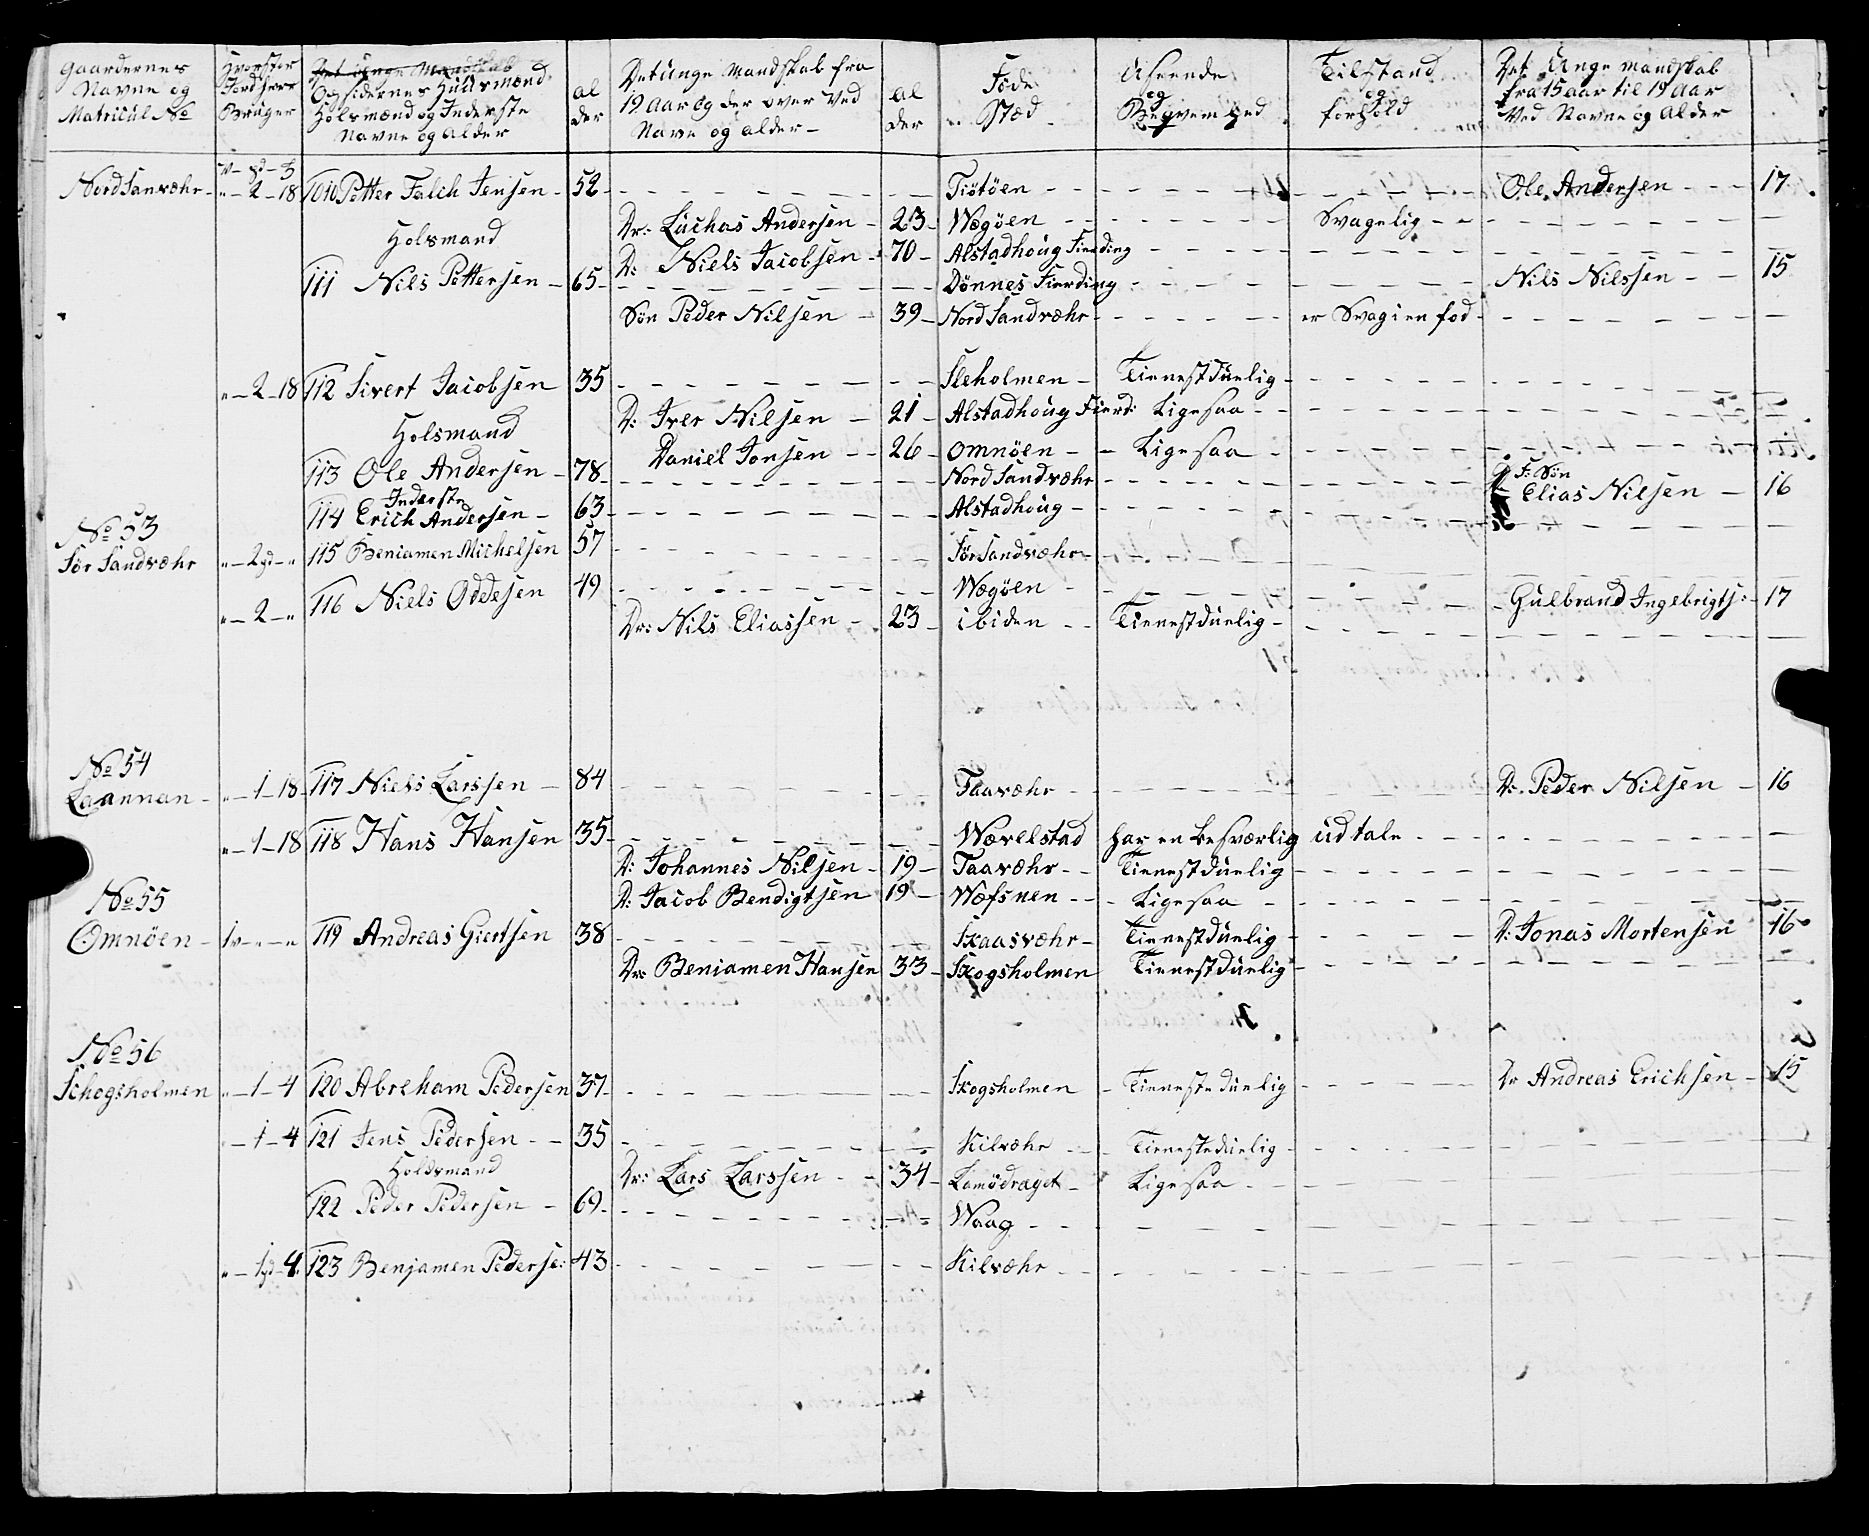 Gaardernes Navne og Matricul No | Hvor stor Jord hver Bruger | Opsidernes Huusmænd Holsmænd og Inderste Navne og Alder | al der | Det unge Mandskab fra 19 Aar og der over Ved Navne og alder – | al der | Føde Stæd | Useende og Beqvemhed | Tilstand og forhold | Det Unge mandskab fra 15 aar til 19 Aar Ved Navne og Alder
NordSanvæhr – | " – 2 – 18 | 1010 Petter Falch Jensen – | 52 | | | Tiötöen | | | Ole Andersen | 17
Dr: Luchas Andersen – | 23 – | Wægöen | | Svagelig
Holsmand
D: Niels Jacobsen – | 70 – | Alstadhoug Fierding
111 Nils Pettersen – | 65 – | | | Dönnes Fierding | | | Nils Nilssen – | 15
Sön Peder Nilsen – | 39 – | Nord Sandvæhr | | er Svag i en fod
" – 2 – 18 | 112 Sivert Jacobsen | 35 | | | Sleholmen – | Tienestduelig
D: Iver Nilsen – | 21 – | Alstadhoug Fierd: | Ligesaa
Holsmand
Daniel Jonsen – | 26 – | Omnöen – | Ligesaa
113 Ole Andersen – | 78 – | | | Nord Sandvæhr | | | F: Sön Elias Nilsen – | 16
Inderste
114 Erich Andersen – | 63 – | | | Alstadhoug –
No 53
Sör Sandvæhr | " – 2 pd – " | 115 Beniamen Michelsen | 57 | | | Sör Sandvæhr
" – 2 – " | 116 Niels Oddesen | 49 | | | Wægöen | | | Gulbrand Ingebrigts: – | 17
Dr: Nils Eliassen – | 23 – | ibiden | Tienestduelig –
No 54
Laannan – | " – 1 – 18 | 117 Niels Larssen – | 84 | | | Taavæhr | | | D: Peder Nilsen – | 16
" – 1 – 18 | 118 Hans Hansen | 35 | | | Wævelstad | har en besværlig | udtale
D: Johannes Nilsen – | 19 – | Taavæhr | Tienestduelig
D: Jacob Bendigtsen | 19 – | Wæfsnen | Ligesaa
No 55
Omnöen – | 1 v – " – " | 119 Andreas Giertsen | 38 | | | Skaasvæhr – | Tienestduelig | | D: Jonas Mortensen | 16
Dr: Beniamen Hansen | 33 – | Skogsholmen | Tienestduelig
No 56
Schogsholmen | " – 1 – 4 | 120 Abreham Pedersen | 37 – | | | Skogsholmen | Tienesteduelig | | Dr Andreas Erichsen – | 15
– 1 – 4 | 121 Jens Pedersen – | 35 | | | Kilvæhr | Tienesteduelig
Holdsmand
Dr: Lars Larssen – | 34 – | | Ligesaa
122 Peder Pedersen – | 69 – | | | Waag
" – 1 pd – 4. | 123 Benjamen Pederse: | 43 | | | Kilvæhr